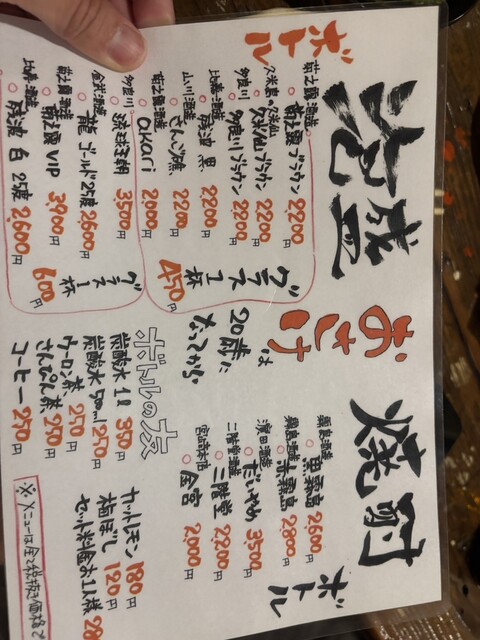 泡盛
ボトル
菊之露酒造
菊之露ブラウン 2,200円
久米島の久米仙
久米仙ブラウン 2,200円
多良川
多良川ブラウン 2,200円
比嘉酒造
残波 黒 2,200円
山川酒造
さんご礁 2,200円
菊之露酒造
Okari 2,000円
グラス1杯 450円
多良川
琉球王朝 3,500円
金武酒造
龍 ゴールド25度 2,600円
菊之露酒造
菊之露VIP 3,900円
比嘉酒造
残波 白 25度 2,600円
グラス1杯 600円
おさけ
は
20歳に
なってから
ボトルの友
炭酸水 1ℓ 350円
炭酸水 500ml 250円
ウーロン茶 250円
さんぴん茶 250円
コーヒー 250円
カットレモン 180円
梅ぼし 120円
セット料金お1人様 28
※メニューは全て税抜き価格で
焼酎
ボトル
霧島酒造
黒霧島 2,600円
霧島酒造
赤霧島 2,800円
濵田酒造
だいやめ 3,500円
二階堂酒造
二階堂 2,200円
宮崎本店
金宮 2,000円